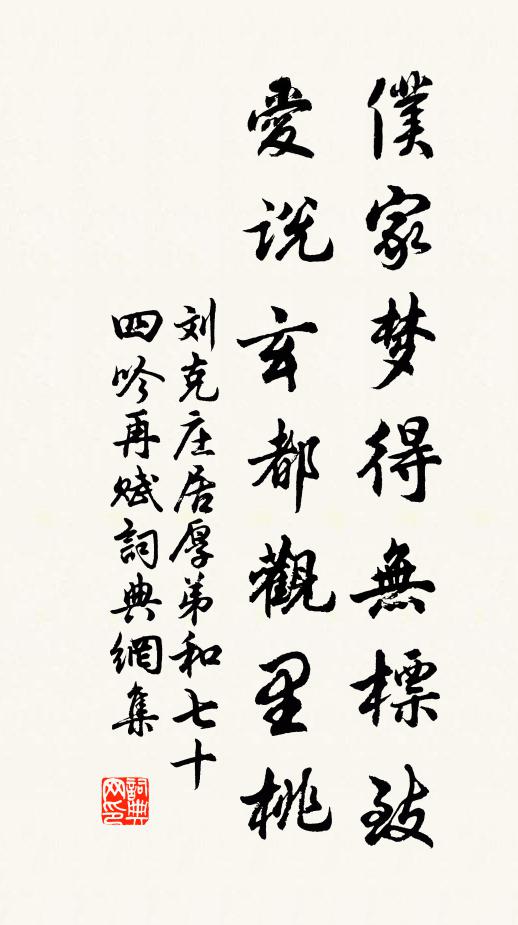 僕家梦得無標致
愛说玄都觀里桃
刘克庄居厚弟和七十
四吟再赋詞典網集
詞典
网印